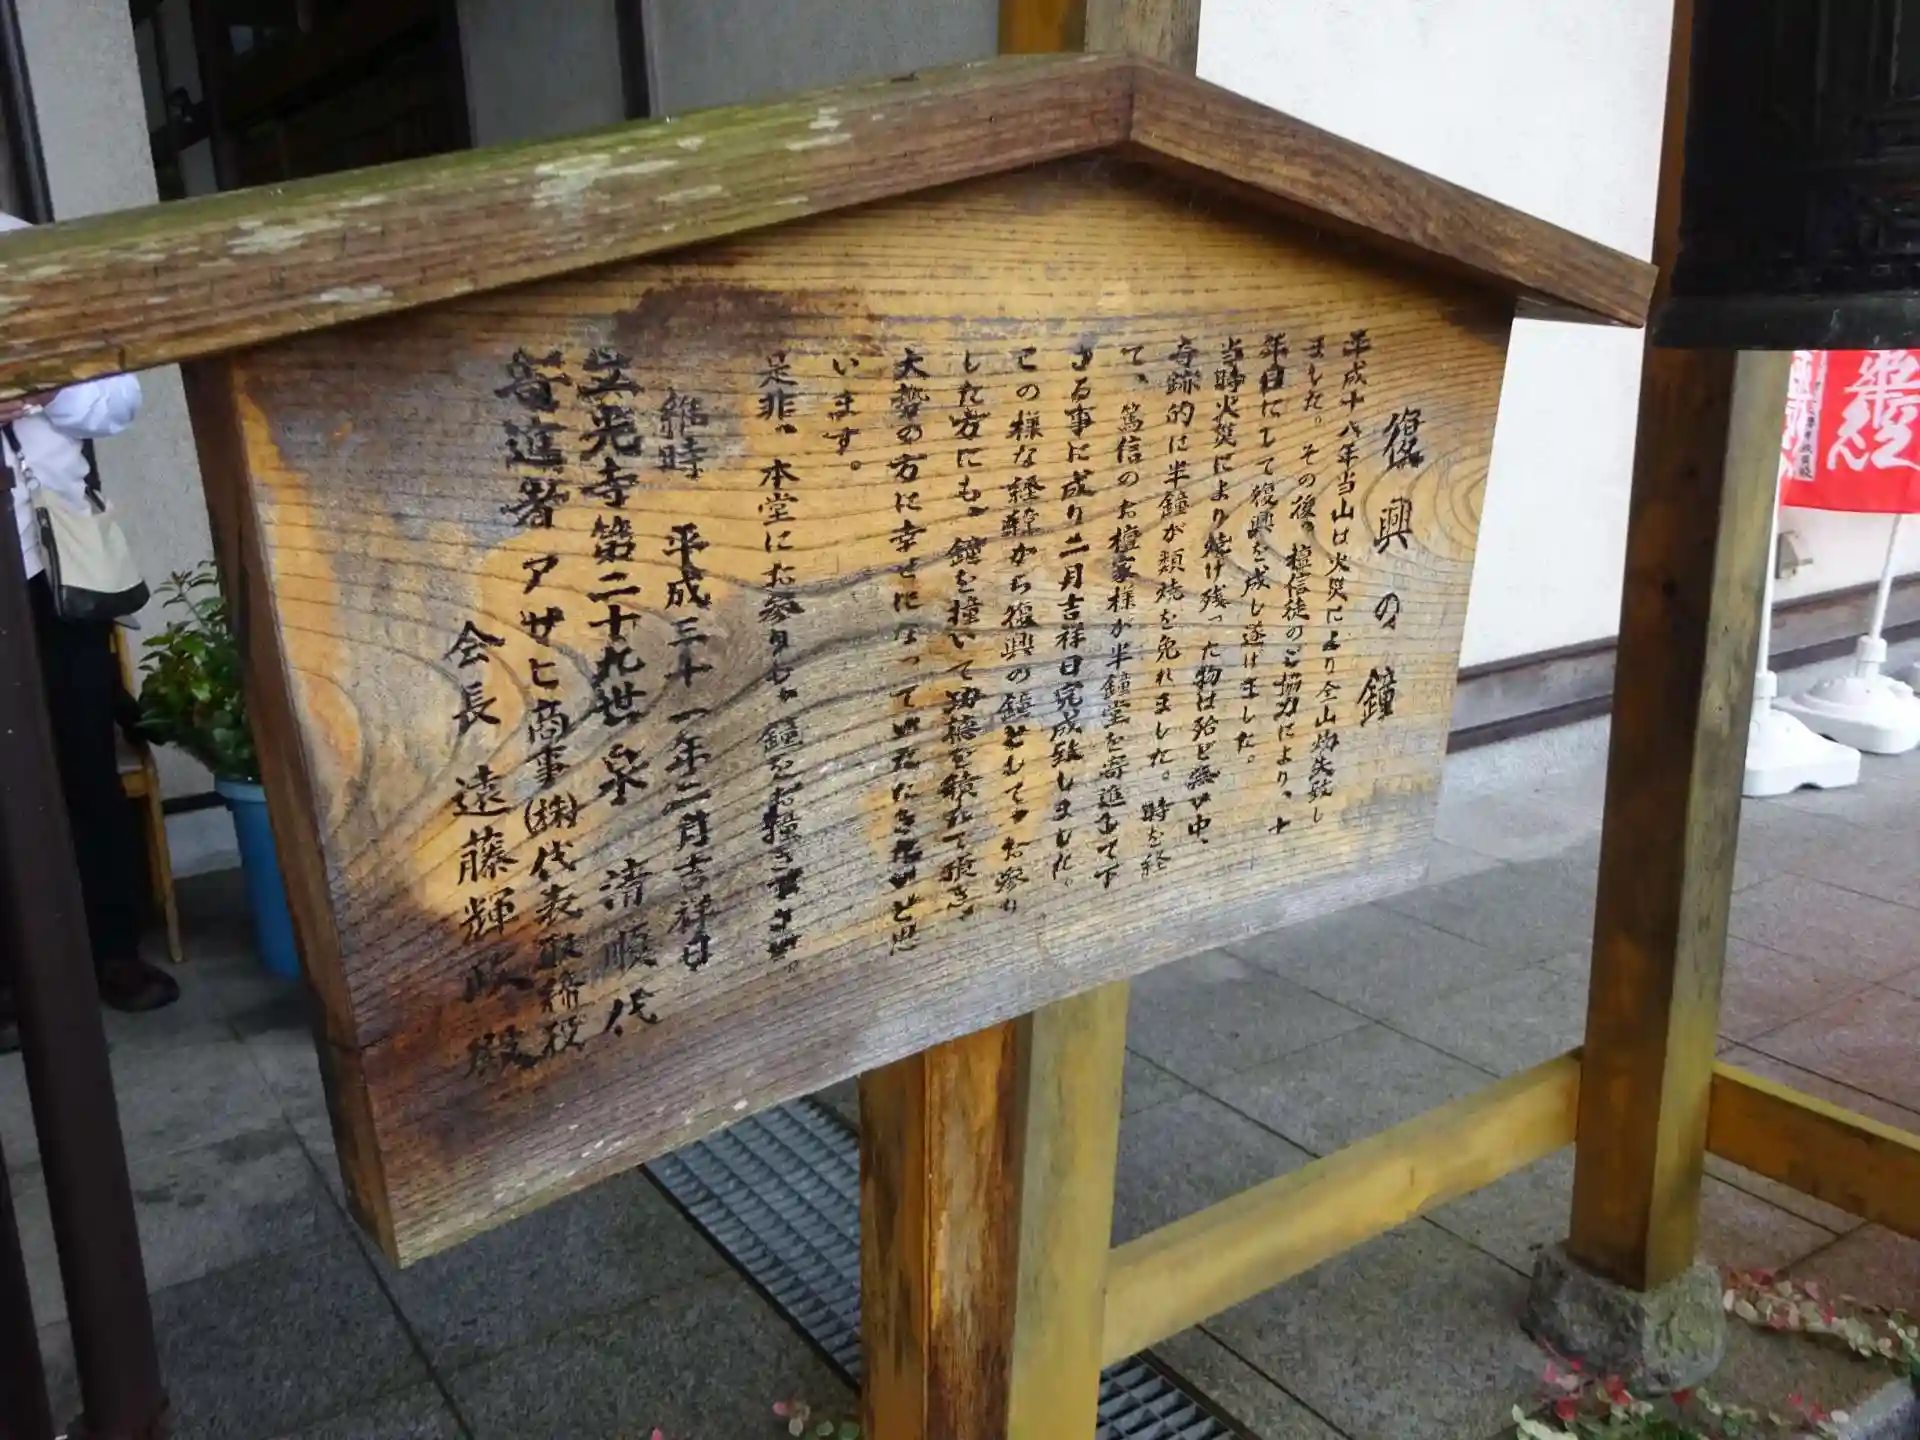 復興の鐘
平成十八年当山は火災により全山灼失致し
ました。その後、檀信徒のご協力により、十
年目にして復興を成し遂げました。
当時火災により焼け残った物は殆ど無い中、
奇跡的に半鐘が類焼を免れました。時を経
て、篤信のお檀家様が半鐘堂を寄進して下
さる事に成り二月吉祥日完成致しました。
この様な経験から復興の鐘としてお参り
した方にも、鐘を撞いて功徳を積んで頂き、
大勢の方に幸せになっていただきたいと思
います。
是非、本堂にお参りし、鐘をお撞き下さい。
維時 平成三十一年二月吉祥日
光寺第二十九世 泉 清順代
寄進者 アサヒ商事㈱代表取締役
会長 遠藤輝政 殿